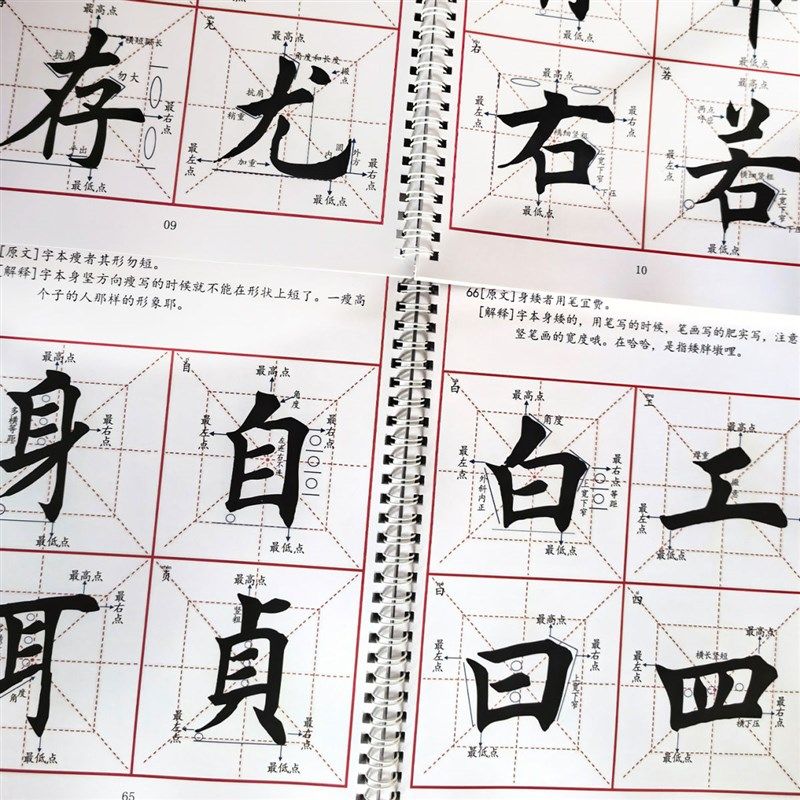 最高点
横短弧长
抗肩
勿大
存
最右点
最低点
尤
最高点
角度和长度
抗肩
稍重
尤
加重
最左点
最右点
最低点
09
最低点
右
最高点
最左点
最右点
右
横细竖粗
上宽下窄
下压
最低点
若
两点
若
横细竖粗
上宽下窄
最左点
最低点
10
[原文]字本瘦者其形勿短。
[解释]字本身竖方向瘦写的时候就不能在形状上短了。一瘦高
个子的人那样的形象耶。
66[原文]身矮者用笔宜费。
[解释]字本身矮的，用笔写的时候，笔画写的肥实写，注意
竖笔画的宽度哦。在哈哈，是指矮胖墩哩。
最高点
多横等距
身
最右点
最低点
自
最高点
角度
最左点
最右点
自
最低点
白
最高点
角度
最左点
最右点
白
外斜内正
上宽下窄
等距
最低点
工
最高点
工
最左点
最低点
最高点
最右点
耳
角度
最低点
贞
最高点
竖粗
貞
最左点
最右点
最低点
65
曰
最高点
最左点
最右点
曰
上宽下窄
最低点
四
最高点
横长竖短
最左点
最右点
四
横下压
最低点